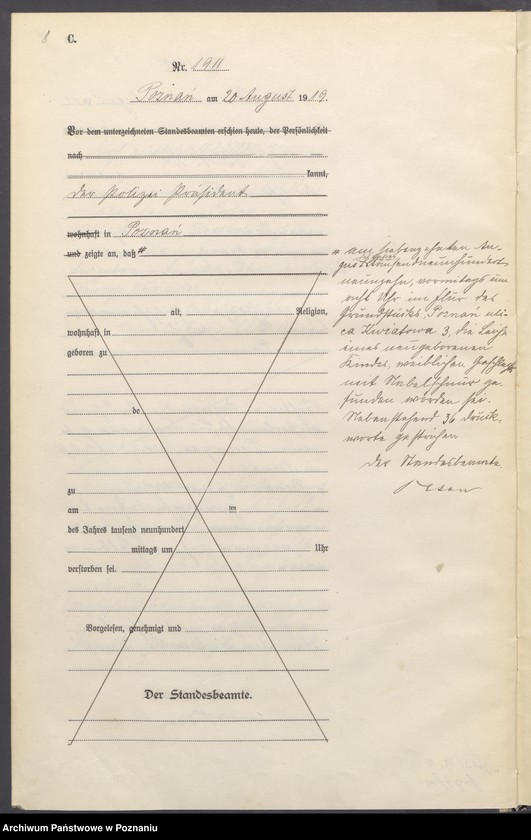 8 C.
Nr. 1911
Poznań am 20 August 1919.
Vor dem unterzeichneten Standesbeamten erschien heute, der Persönlichkeit
nach
kannt,
der Polizei Präsident
wohnhaft in Poznań
und zeigte an, daß #
alt, Religion,
wohnhaft in
geboren zu
de
zu
am ten
des Jahres tausend neunhundert
mittags um Uhr
verstorben sei.
Vorgelesen, genehmigt und
Der Standesbeamte.
# am siebenzehnten Au-
gust tausendneunhundert
neunzehn, vormittags um
acht Uhr im Flur des
Grundstücks, Poznań uli-
ca Kwiatowa 3, die Leiche
eines neugeborenen
Kindes, weiblichen Geschlechts
mit Nabelschnur ge-
funden worden sei.
Nebenstehend 36 Druck-
worte gestrichen
Der Standesbeamte
Archiwum Państwowe w Poznaniu